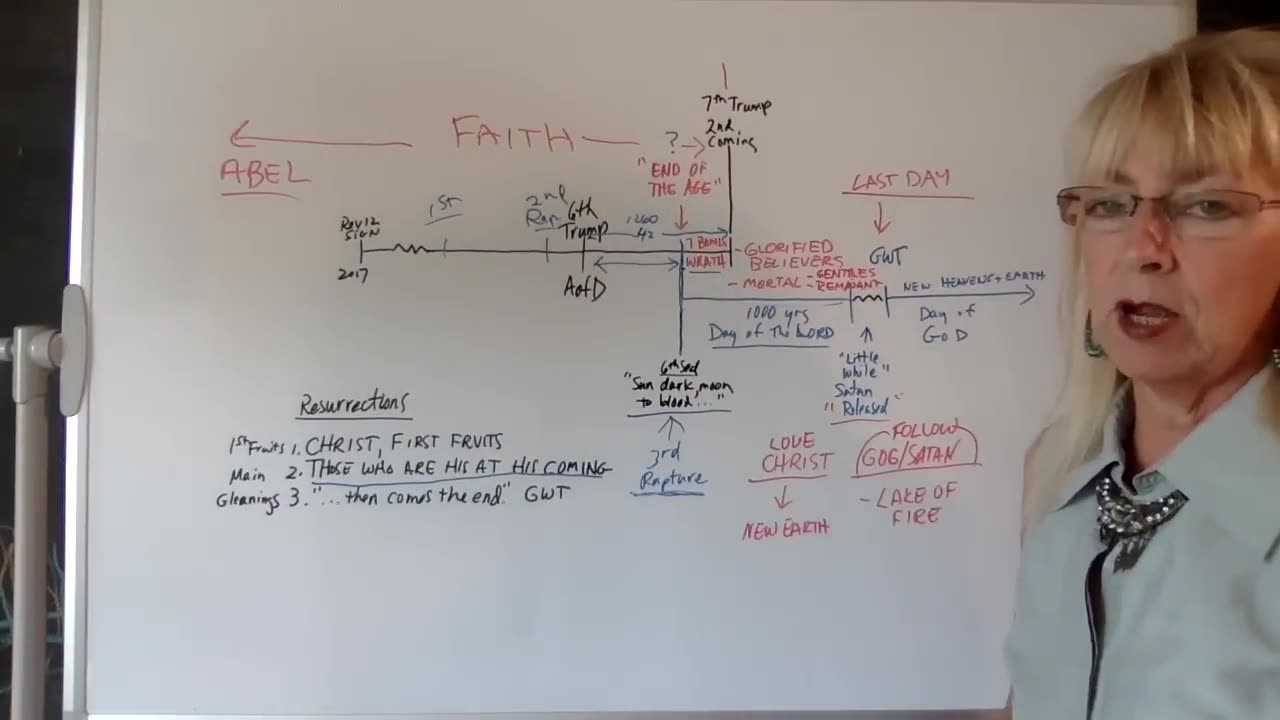 7th Trump
2nd
Coming
FAITH
?
"END OF
THE AGE"
ABEL
LAST DAY
Rev 12
SIGN
2017
1ST
2nd
Rap
6th
Trump
AofD
1260
42
7 BOWLS
WRATH
- GLORIFIED
BELIEVERS
- MORTAL - GENTILES
- REMNANT
GWT
NEW HEAVENS + EARTH
1000 yrs
Day of The LORD
Day of
GOD
6th Seal
"Sun dark, moon
to blood..."
3rd
Rapture
"Little
While"
Satan
"Released"
LOVE
CHRIST
NEW EARTH
FOLLOW
GOG/SATAN
- LAKE OF
FIRE
Resurrections
1st Fruits 1. CHRIST, FIRST FRUITS
Main 2. THOSE WHO ARE HIS AT HIS COMING
Gleanings 3. "... then comes the end." GWT